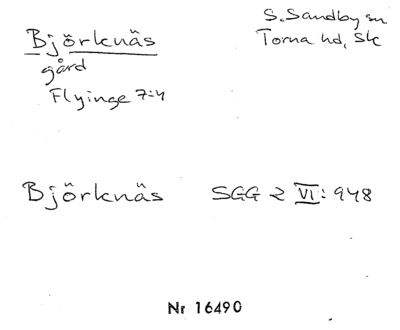 Björknäs
S. Sandby sn
Torna hd, Sk
gård
Flyinge 7:4
Björknäs SGG 2 VI: 948
Nr 16490